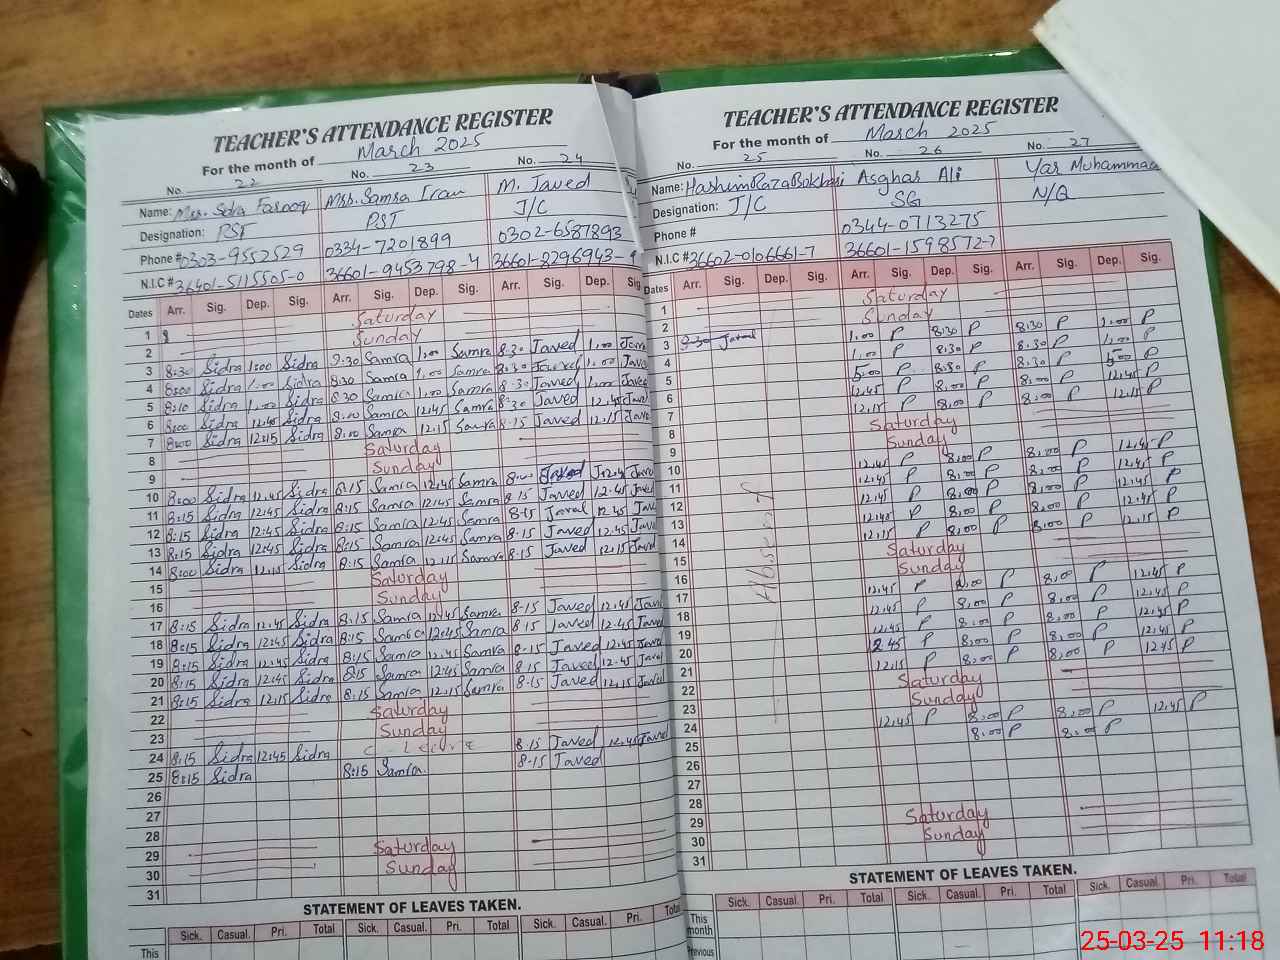 TEACHER'S ATTENDANCE REGISTER
For the month of March 2025
No. 22 No. 23 No. 24
Name: Mrs. Sidra Farooq Mrs. Samra M. Javed
Designation: PST PST J/C
Phone # 0303-9552529 0334-7201899 0302-6587893
N.I.C # 36401-5115505-0 36601-9453798-4 36601-8296943-
Dates Arr. Sig. Dep. Sig. Arr. Sig. Dep. Sig. Arr. Sig. Dep. Sig.
1 Saturday
2 Sunday
3 8:30 Sidra 1:00 Sidra 8:30 Samra 1,00 Samra 8-30 Javed 1,00
4 8:00 Sidra 1:00 Sidra 8:30 Samra 1,00 Samra 8:30 Javed 1,00
5 8:10 Sidra 1,00 Sidra 8:30 Samra 1,00 Samra 8-30 Javed 1,00
6 8:00 Sidra 12:45 Sidra 8:00 Samra 12,45 Samra 8:30 Javed 12,45
7 8:00 Sidra 12:15 Sidra 8:10 Samra 12,15 Samra 8-15 Javed 12,15
8 Saturday
9 Sunday
10 8:00 Sidra 12,45 Sidra 8:15 Samra 12,45 Samra Javed
11 8:15 Sidra 12:45 Sidra 8:15 Samra 12:45 Samra 8-15 Javed 12-45
12 8:15 Sidra 12:45 Sidra 8:15 Samra 12:45 Samra 8-15 Javed 12,45
13 8:15 Sidra 12:45 Sidra 8:15 Samra 12:45 Samra 8-15 Javed 12,45
14 8:00 Sidra 12,15 Sidra 8:15 Samra 12,15 Samra 8-15 Javed 12,15
15 Saturday
16 Sunday
17 8:15 Sidra 12,45 Sidra 8:15 Samra 12,45 Samra 8-15 Javed 12,45
18 8:15 Sidra 12:45 Sidra 8:15 Samra 12:45 Samra 8-15 Javed 12,45
19 8:15 Sidra 12,45 Sidra 8:15 Samra 12,45 Samra 8-15 Javed 12,45
20 8:15 Sidra 12:45 Sidra 8:15 Samra 12:45 Samra 8-15 Javed 12-45
21 8:15 Sidra 12,15 Sidra 8:15 Samra 12,15 Samra 8-15 Javed 12,15
22 Saturday
23 Sunday
24 8:15 Sidra 12:45 Sidra 8-15 Javed 12,45 Javed
25 8:15 Sidra 8:15 Samra 8-15 Javed
26
27
28
29 Saturday
30 Sunday
31
STATEMENT OF LEAVES TAKEN.
Sick. Casual. Pri. Total Sick. Casual. Pri. Total Sick. Casual. Pri. Total
This
TEACHER'S ATTENDANCE REGISTER
For the month of March 2025
No. 25 No. 26 No. 27
Name: Hashim Raza Bokhari Asghar Ali Yar Muhammad
Designation: J/C SG N/Q
Phone # 0344-0713275
N.I.C # 36602-0106661-7 36601-1598572-7
Dates Arr. Sig. Dep. Sig. Arr. Sig. Dep. Sig. Arr. Sig. Dep. Sig.
1 Saturday
2 Sunday
3 8-30 Javed 1,00 P 8:30 P 8:30 P 1,00 P
4 1,00 P 8:30 P 8:30 P 1,00 P
5 5,00 P 8:30 P 8:30 P 5,00 P
6 12,45 P 8,00 P 8,00 P 12,45 P
7 12,15 P 8,00 P 8,00 P 12,15 P
8 Saturday
9 Sunday
10 12,45 P 8,00 P 8,00 P 12,45 P
11 12,45 P 8,00 P 8,00 P 12,45 P
12 12,45 P 8,00 P 8,00 P 12,45 P
13 12,15 P 8,00 P 8,00 P 12,15 P
14 Saturday
15 Sunday
16 12,45 P 8,00 P 8,00 P 12,45 P
17 12,45 P 8,00 P 8,00 P 12,45 P
18 12,45 P 8,00 P 8,00 P 12,45 P
19 2,45 P 8,00 P 8,00 P 12,45 P
20 12,15 P 8,00 P 8,00 P 12,45 P
21 Saturday
22 Sunday
23 12,45 P 8,00 P 8,00 P 12,45 P
24 8,00 P 8,00 P
25
26
27
28
29 Saturday
30 Sunday
31
STATEMENT OF LEAVES TAKEN.
Sick. Casual. Pri. Total Sick. Casual. Pri. Total Sick. Casual. Pri. Total
This month
Previous
25-03-25 11:18